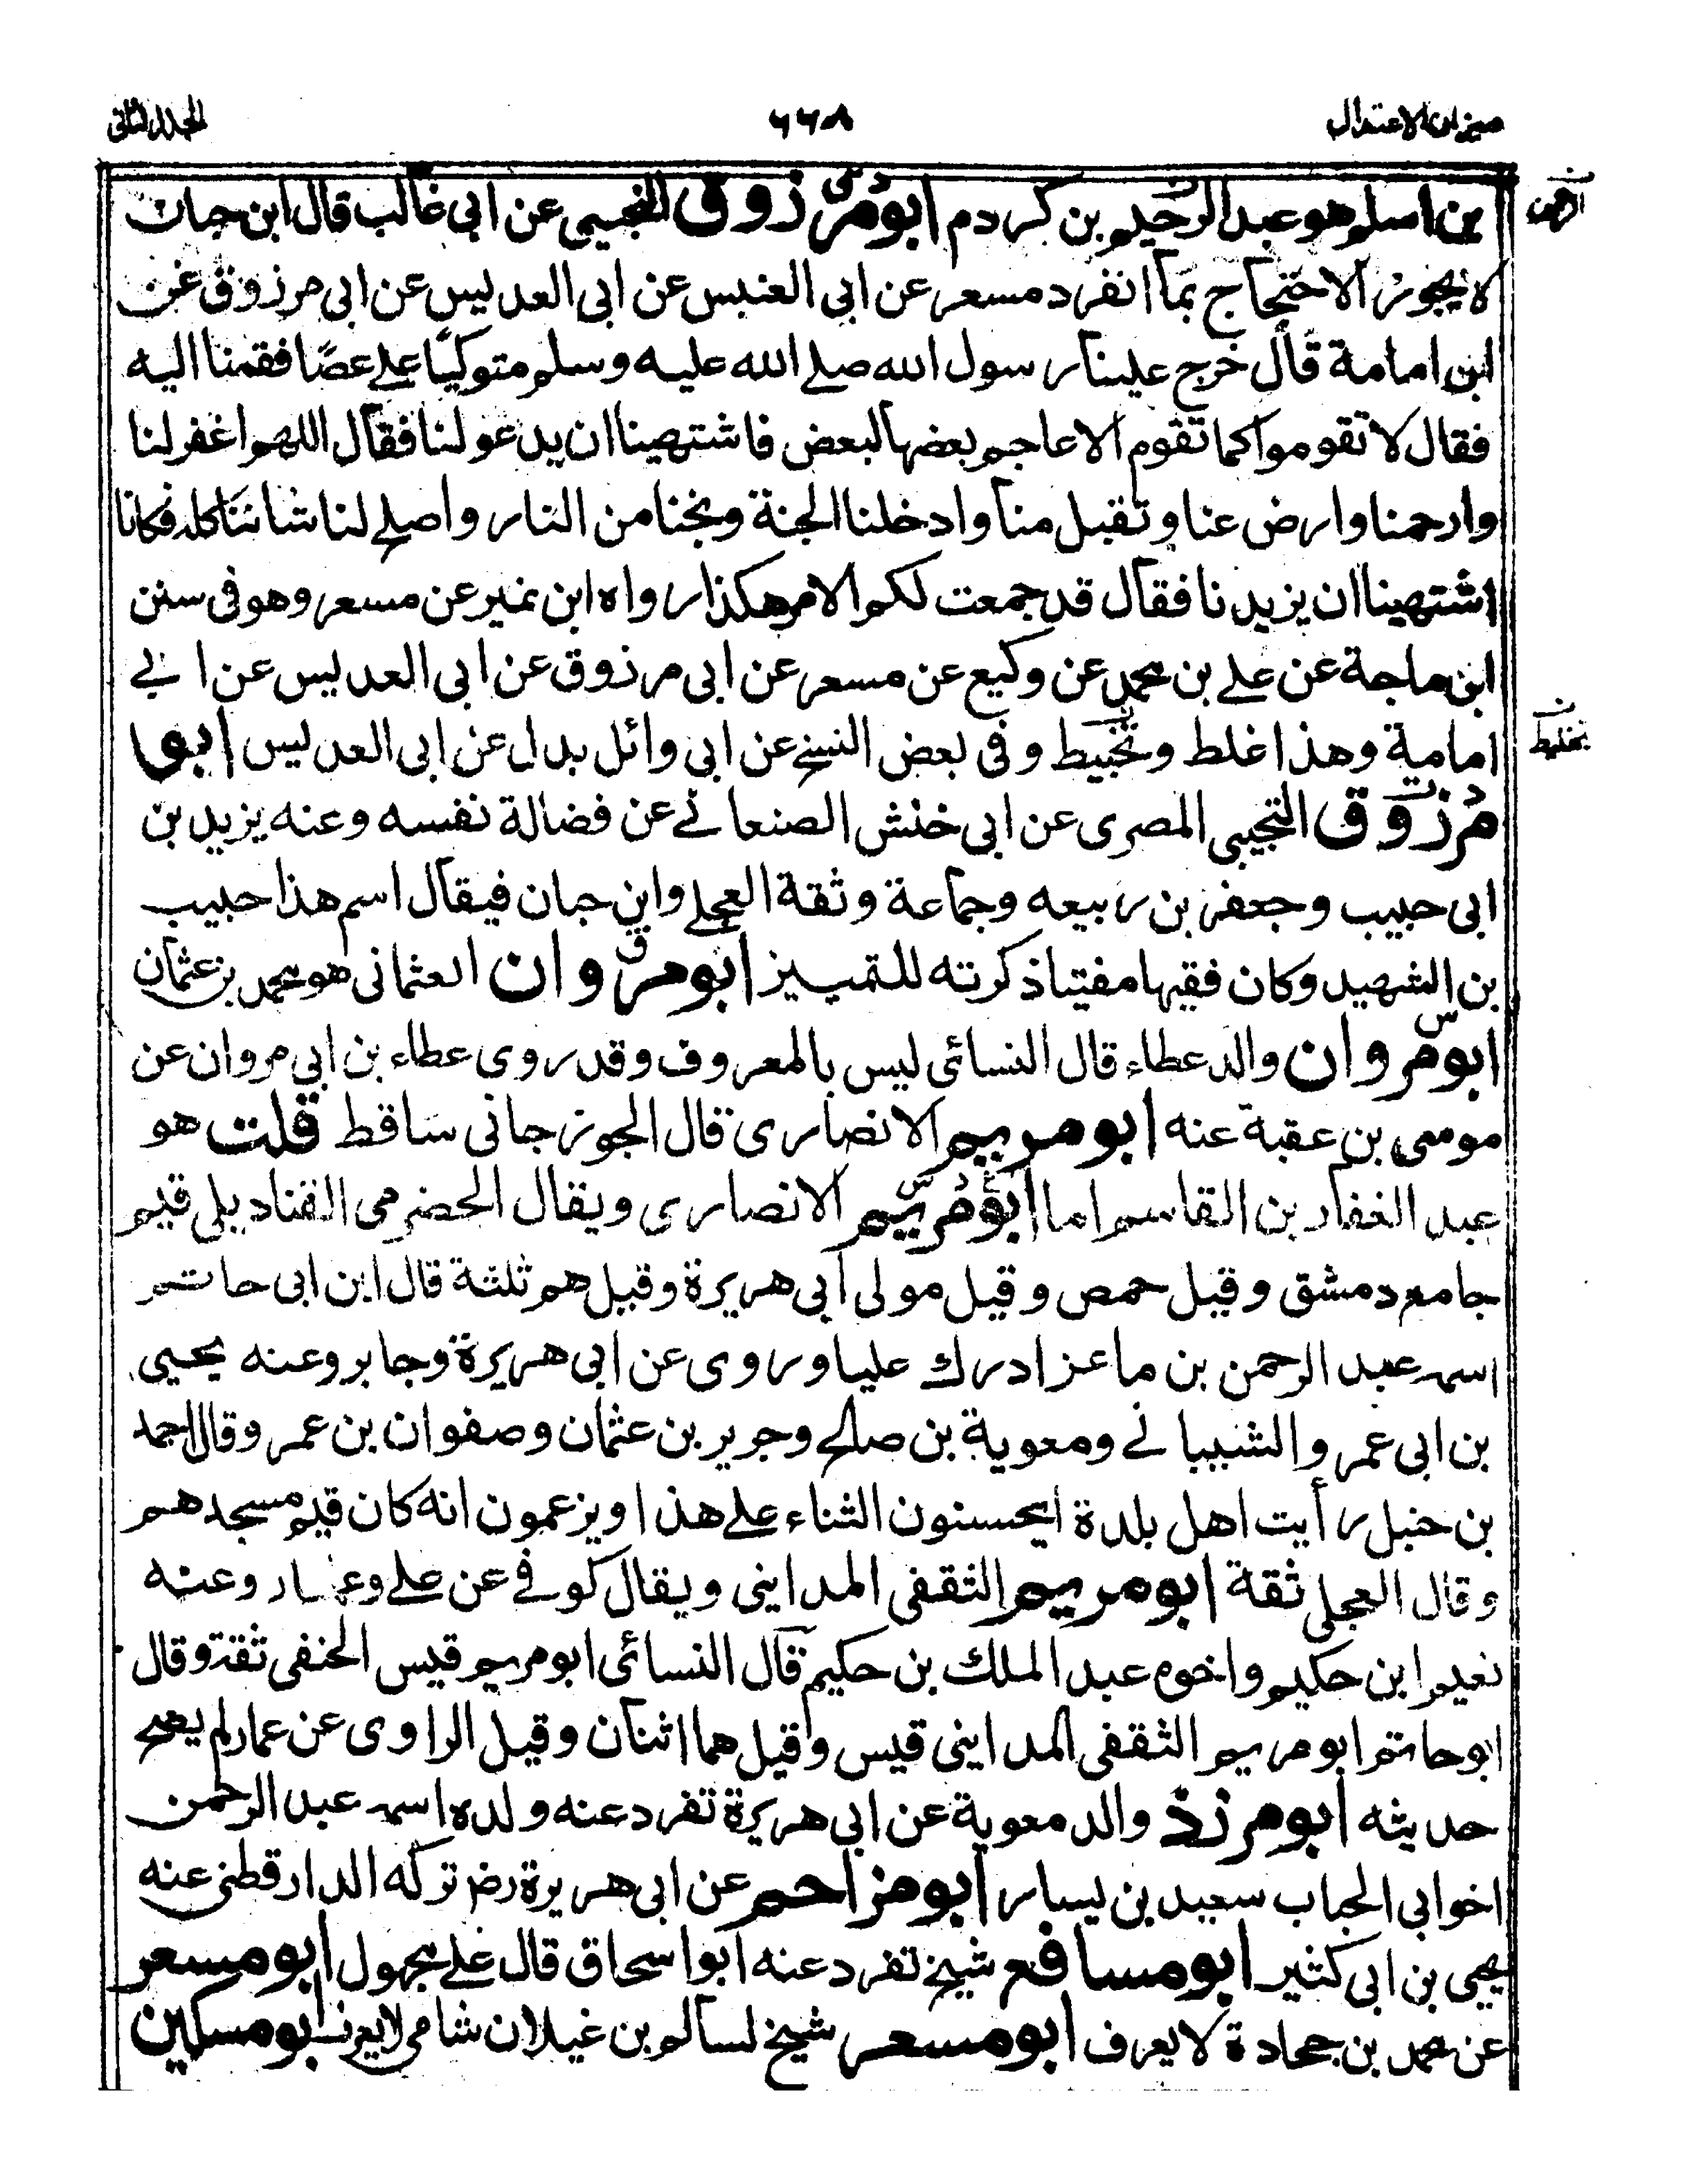 ميزان الاعتدال
٦٦٨
المجلد الثانى
بن اسلم هو عبد الرحيم بن كردم ابو مرزوق التجيبى عن ابى غالب قال ابن حبان
لا يجوز الاحتجاج بما انفرد مسعر عن ابى العنبس عن ابى العدلیس عن ابى مرزوق عن
ابن امامة قال خرج علينا رسول الله صلے الله عليه وسلم متوكيًا علے عصًا فقمنا اليه
فقال لا تقوموا كما تقوم الاعاجم بعضها لبعض فاشتهينا ان يدعو لنا فقال اللهم اغفر لنا
وارحمنا وارض عنا وتقبل منا وادخلنا الجنة ونجنا من النار واصلح لنا شاننا كله فكانا
اشتهينا ان يزيدنا فقال قد جمعت لكم الامر هكذا رواه ابن نمير عن مسعر وهو فى سنن
ابن ماجة عن علے بن محمد عن وكيع عن مسعر عن ابى مرزوق عن ابى العدلیس عن ابے
امامة وهذا غلط وتخبيط وفى بعض النسخ عن ابى وائل بدل عن ابى العدلیس ابو
مرزوق التجيبى المصرى عن ابى خنش الصنعانے عن فضالة نفسه وعنه يزيد بن
ابى حبيب وجعفر بن ربيعه وجماعة وثقة العجلے وابن حبان فيقال اسم هذا حبيب
بن الشهيد وكان فقيها مفتيا ذكرته للتمييز ابو مروان العثمانى هو محمد بن عثمان
ابو مروان والد عطاء قال النسائى ليس بالمعروف وقد روى عطاء بن ابى مروان عن
موسى بن عقبة عنه ابو مريم الانصارى قال الجوزجانى ساقط قلت هو
عبد الغفار بن القاسم اما ابو مريم الانصارى ويقال الحضرمى القناديلى قيم
جامع دمشق وقيل حمص وقيل مولى ابى هريرة وقيل هم ثلثة قال ابن ابى حاتم
اسمه عبد الرحمن بن ماعز ادرك عليا وروى عن ابى هريرة وجابر وعنه يحيى
بن ابى عمر والشيبانے ومعوية بن صالح وجرير بن عثمان وصفوان بن عمر وقال احمد
بن حنبل رأيت اهل بلدة يحسنون الثناء علے هذا ويزعمون انه كان قيم مسجدهم
وقال العجلى ثقة ابو مريم الثقفى المداينى ويقال كوفے عن علے وعمار وعنه
نعيم ابن حكيم واخوه عبد الملك بن حكيم قال النسائى ابو مريم قيس الحنفى ثقة وقال
ابو حاتم ابو مريم الثقفى المداينى قيس وقيل هما اثنان وقيل الراوى عن عمار لم يصح
حديثه ابو مرزذ والد معوية عن ابى هريرة تفرد عنه ولده اسمه عبد الرحمن
اخو ابى الحباب سعيد بن يسار ابو مزاحم عن ابى هريرة رض تركه الدارقطنى عنه
يحيى بن ابى كثير ابو مسافع شيخ تفرد عنه ابو اسحاق قال علے مجهول ابو مسعر
عن محمد بن جحادة لا يعرف ابو مسعر شيخ لسالم بن غيلان شامى لا يعرف ابو مسكين
بتخليط